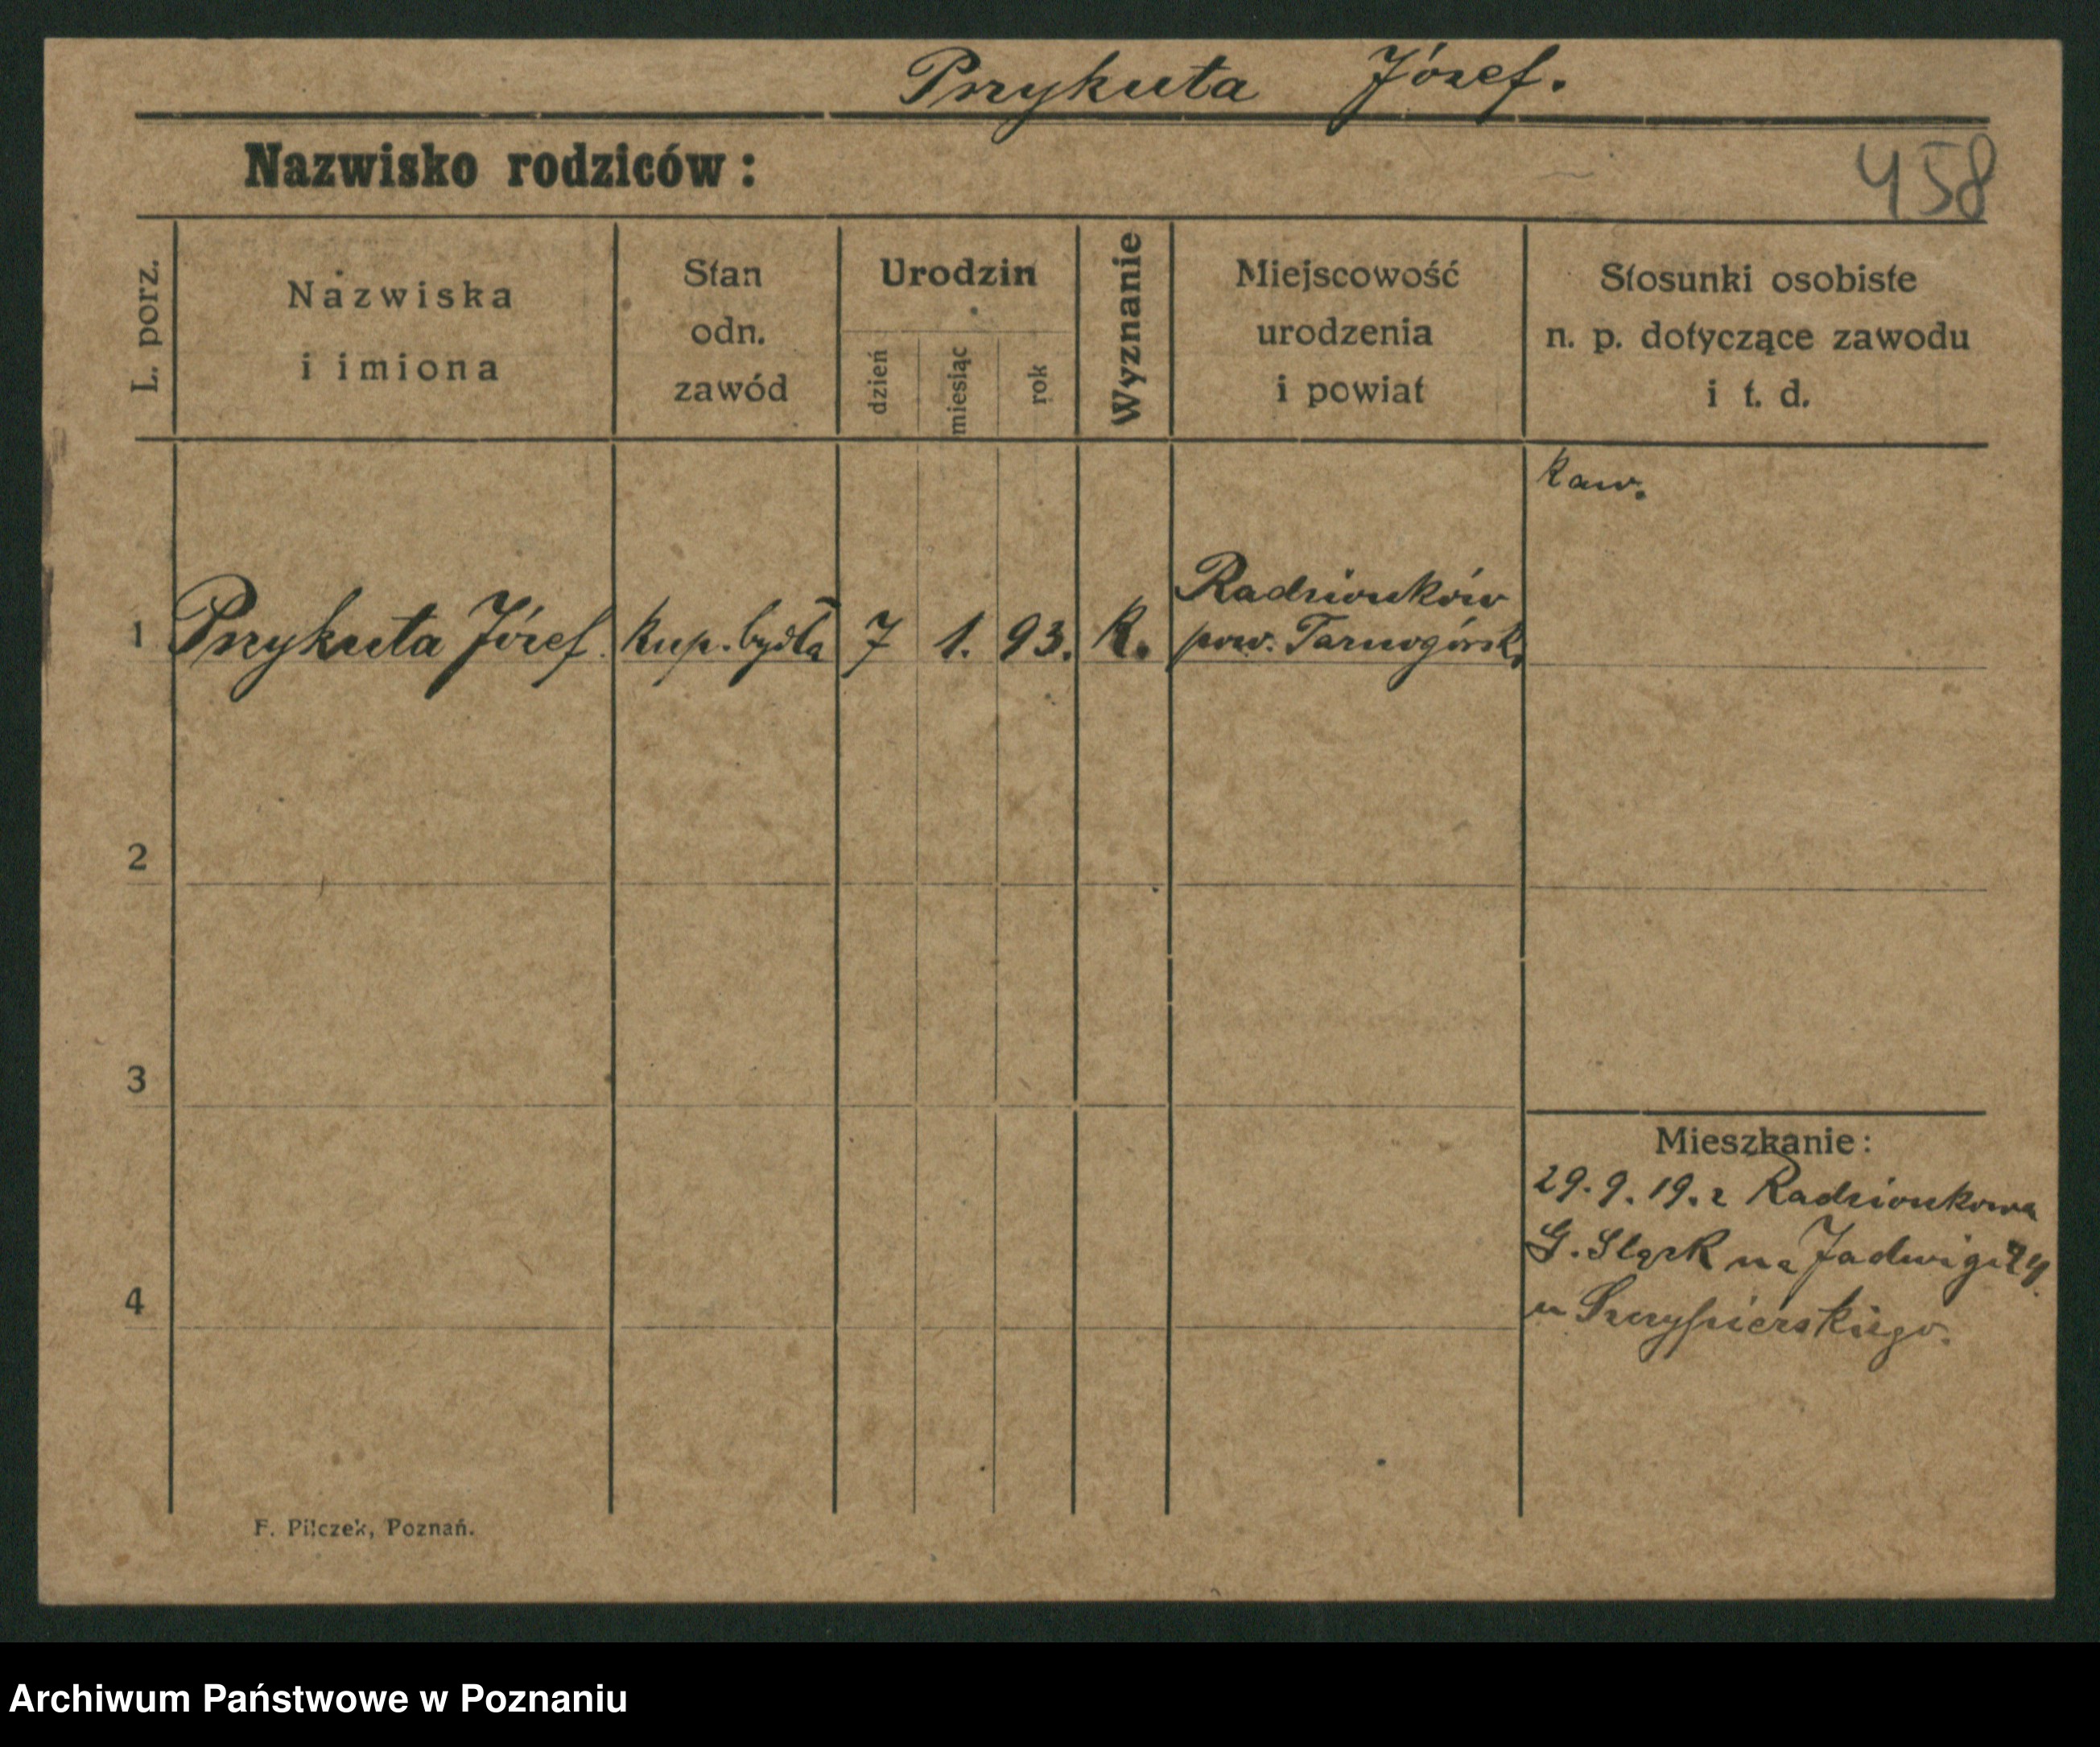 Przykuta Józef.
Nazwisko rodziców:
458
L. porz.
Nazwiska
i imiona
Stan
odn.
zawód
Urodzin
dzień
miesiąc
rok
Wyznanie
Miejscowość
urodzenia
i powiat
Stosunki osobiste
n. p. dotyczące zawodu
i t. d.
kaw.
1 Przykuta Józef. kup. bydła 7 1. 93. k. Radzionków
pow. Tarnogórsk.
2
3
4
Mieszkanie:
29. 9. 19. z Radzionkowa
G. Sląsk na Jadwigi
u
F. Pilczek, Poznań.
Archiwum Państwowe w Poznaniu